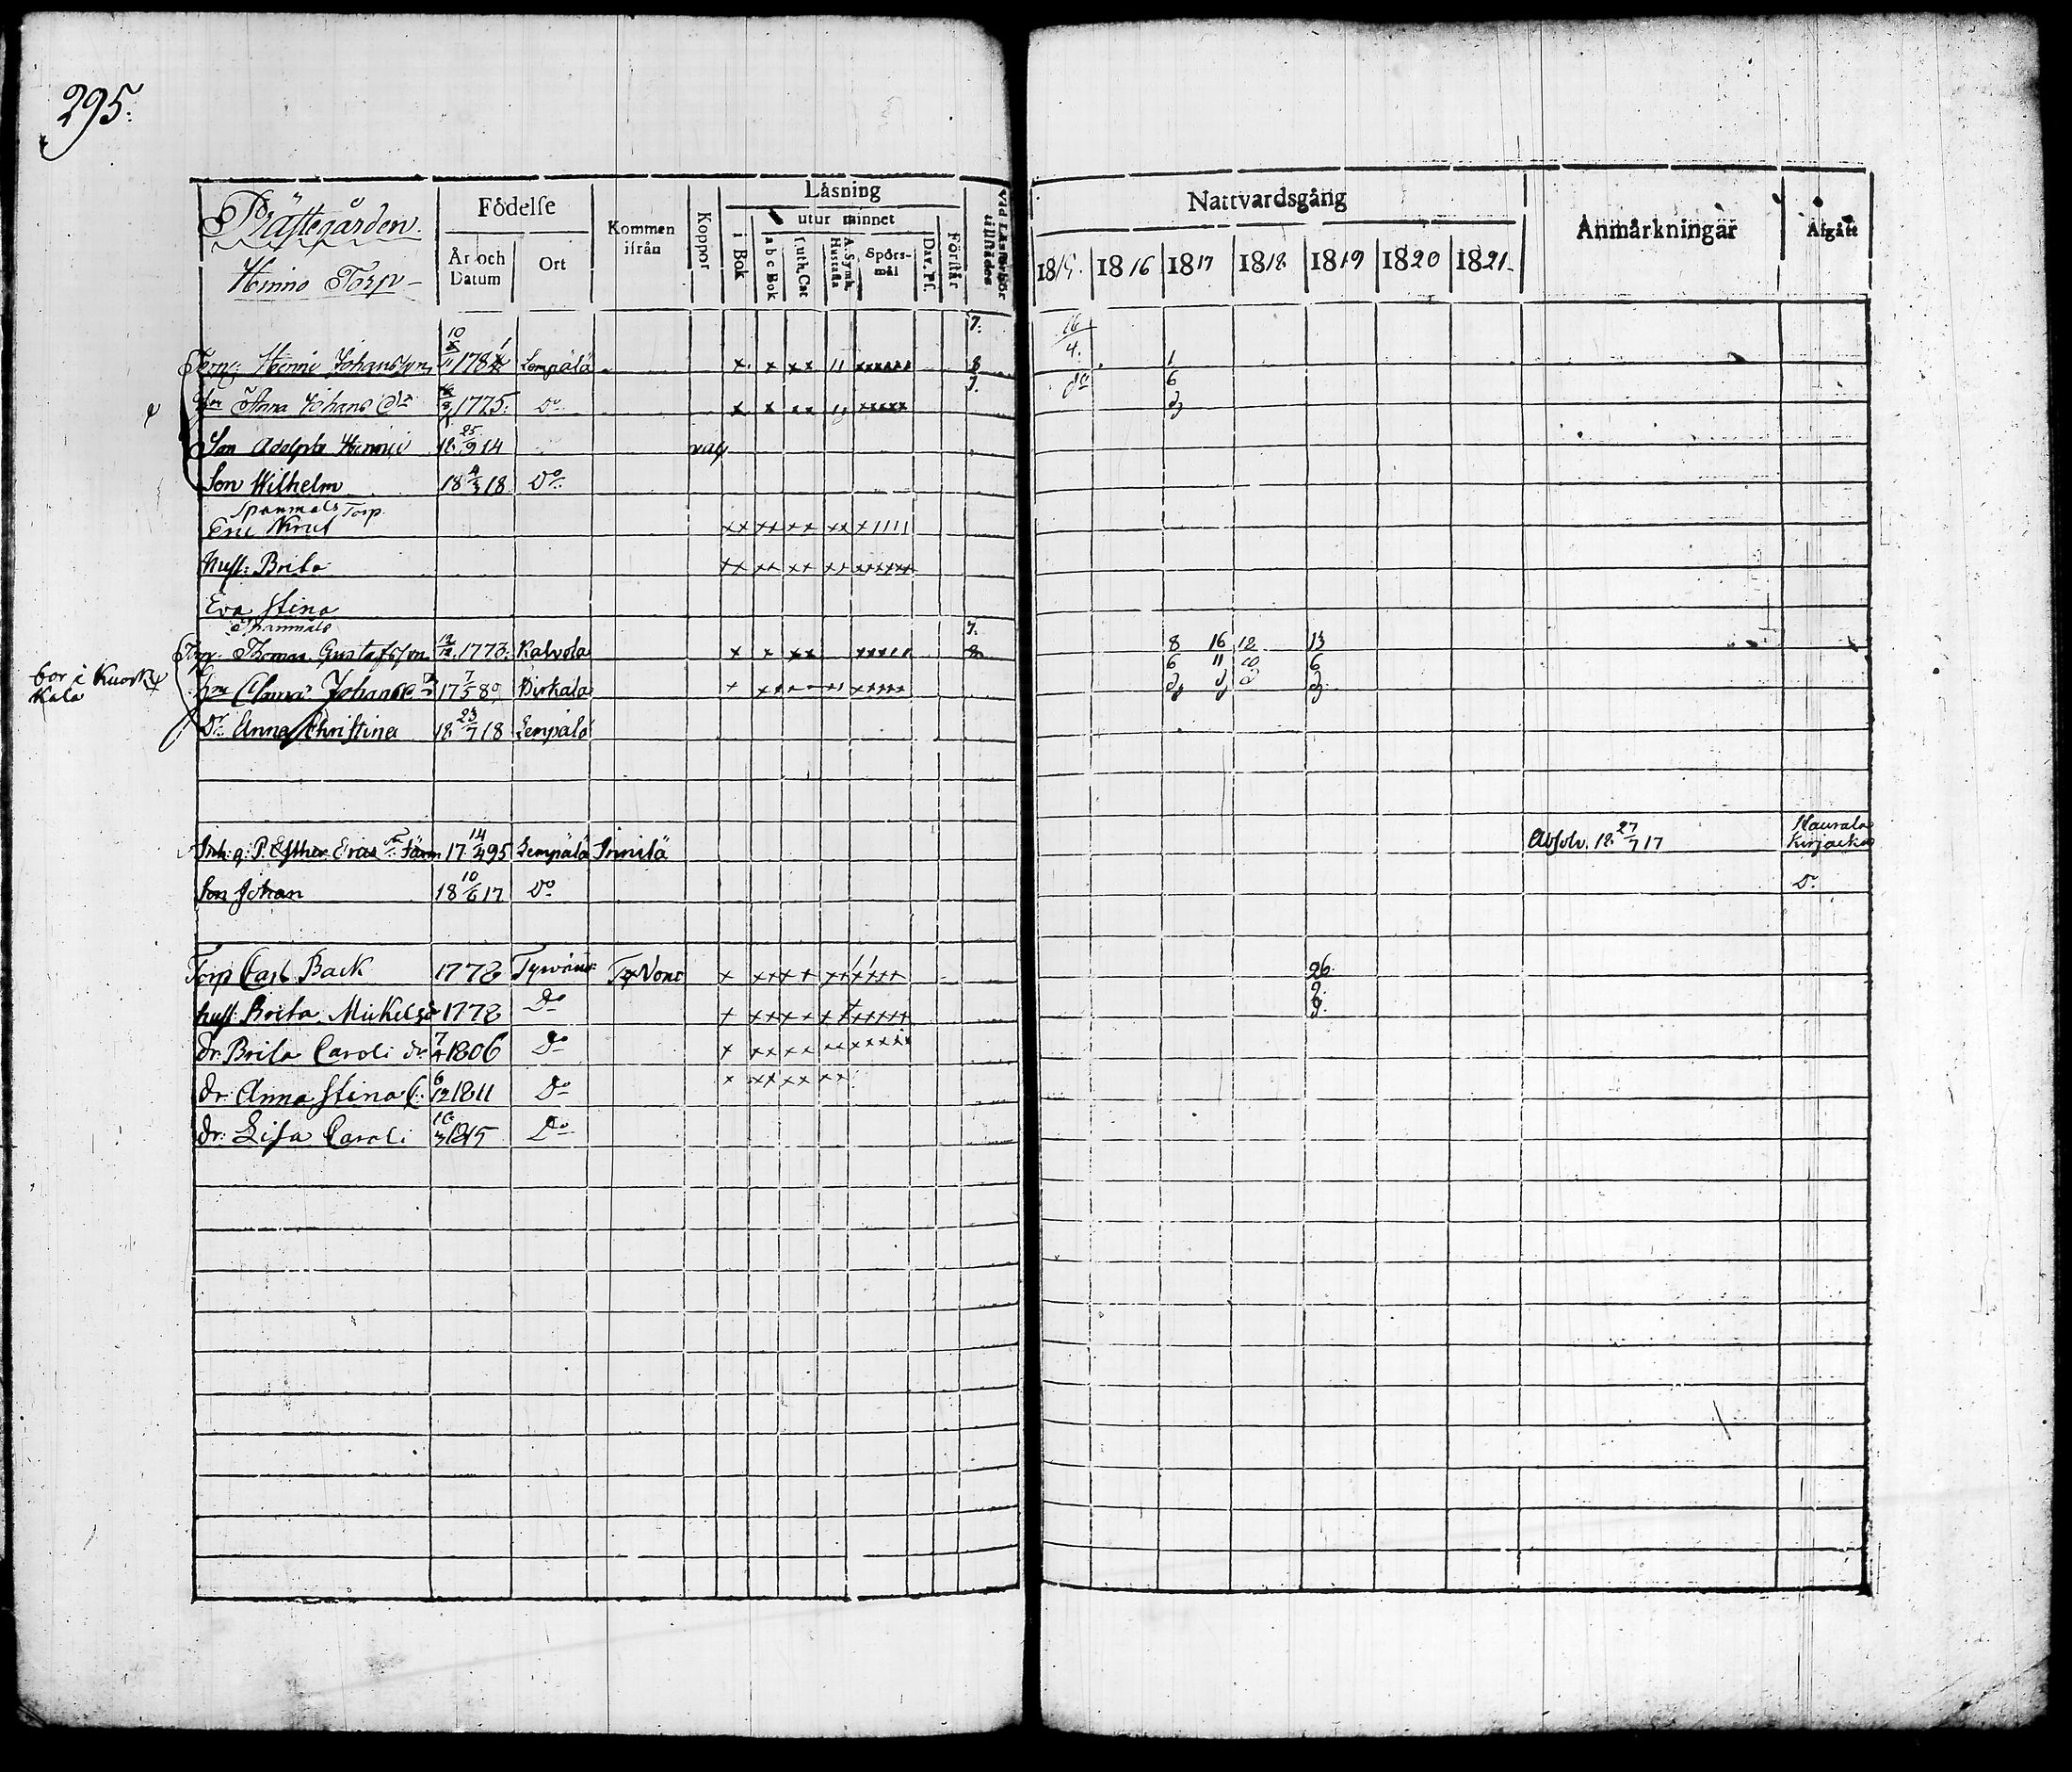 295.
Prästegården.
Hinno Torp
Födelse
År och Datum
Ort
Kommen ifrån
Koppor
Läsning
i Bok
utur minnet
a b c Bok
Luth. Cat
A. Symb. Hustafla
Spörs-mål
Dav. Ps.
Förstår
Vid Läsförhör tillstädes
Nattvardsgång
1815. 1816 1817 1818 1819 1820 1821
Anmärkningar
Afgått
Henric Johansson 10/11 1781 Lempälä x. x xx 11 xxxxxx 7. 8 16/4. 1
Hu Anna Johans Dr 1775. Do x x xx 11 xxxxx 7. do 6
Son Adolph Henric 18 25/9 14 vac
Son Wilhelm 18 4/3 18 Do
Spanmåls Torp.
Eric Knut xx xx xx xx x1111
hust: Brita xx xx xx xx xxxxxx
Eva Stina
Spanmåls
Torp. Thomas Gustafsson 12/12 1773. Kalvola x x xx xxxxx 7. 8 8 16 18 13
bor i Kuork
kala
hu Clara Johans Dr 17 7/5 80 Birkala x xx xxxxx 6 11 10 6
Dr. Anna Christina 18 23/7 18 Lempälä
Inh. q. P. Esther Erics Dr 17 14/4 95 Lempälä Absolv. 18 27/7 17
Son Johan 18 10/6 17 Do Do
Torp Carl Back 1778 x xx xx xx xxxx 26
hust: Brita Mickelsd 1778 Do x xx xx x xxxxx 9.
dr. Brita Caroli dr. 7/4 1806 Do x xx xx xx xxxxx
dr. Anna Stina C: 6/12 1811 Do x xx xx xx
dr: Lisa Caroli 10/3 1815 Do